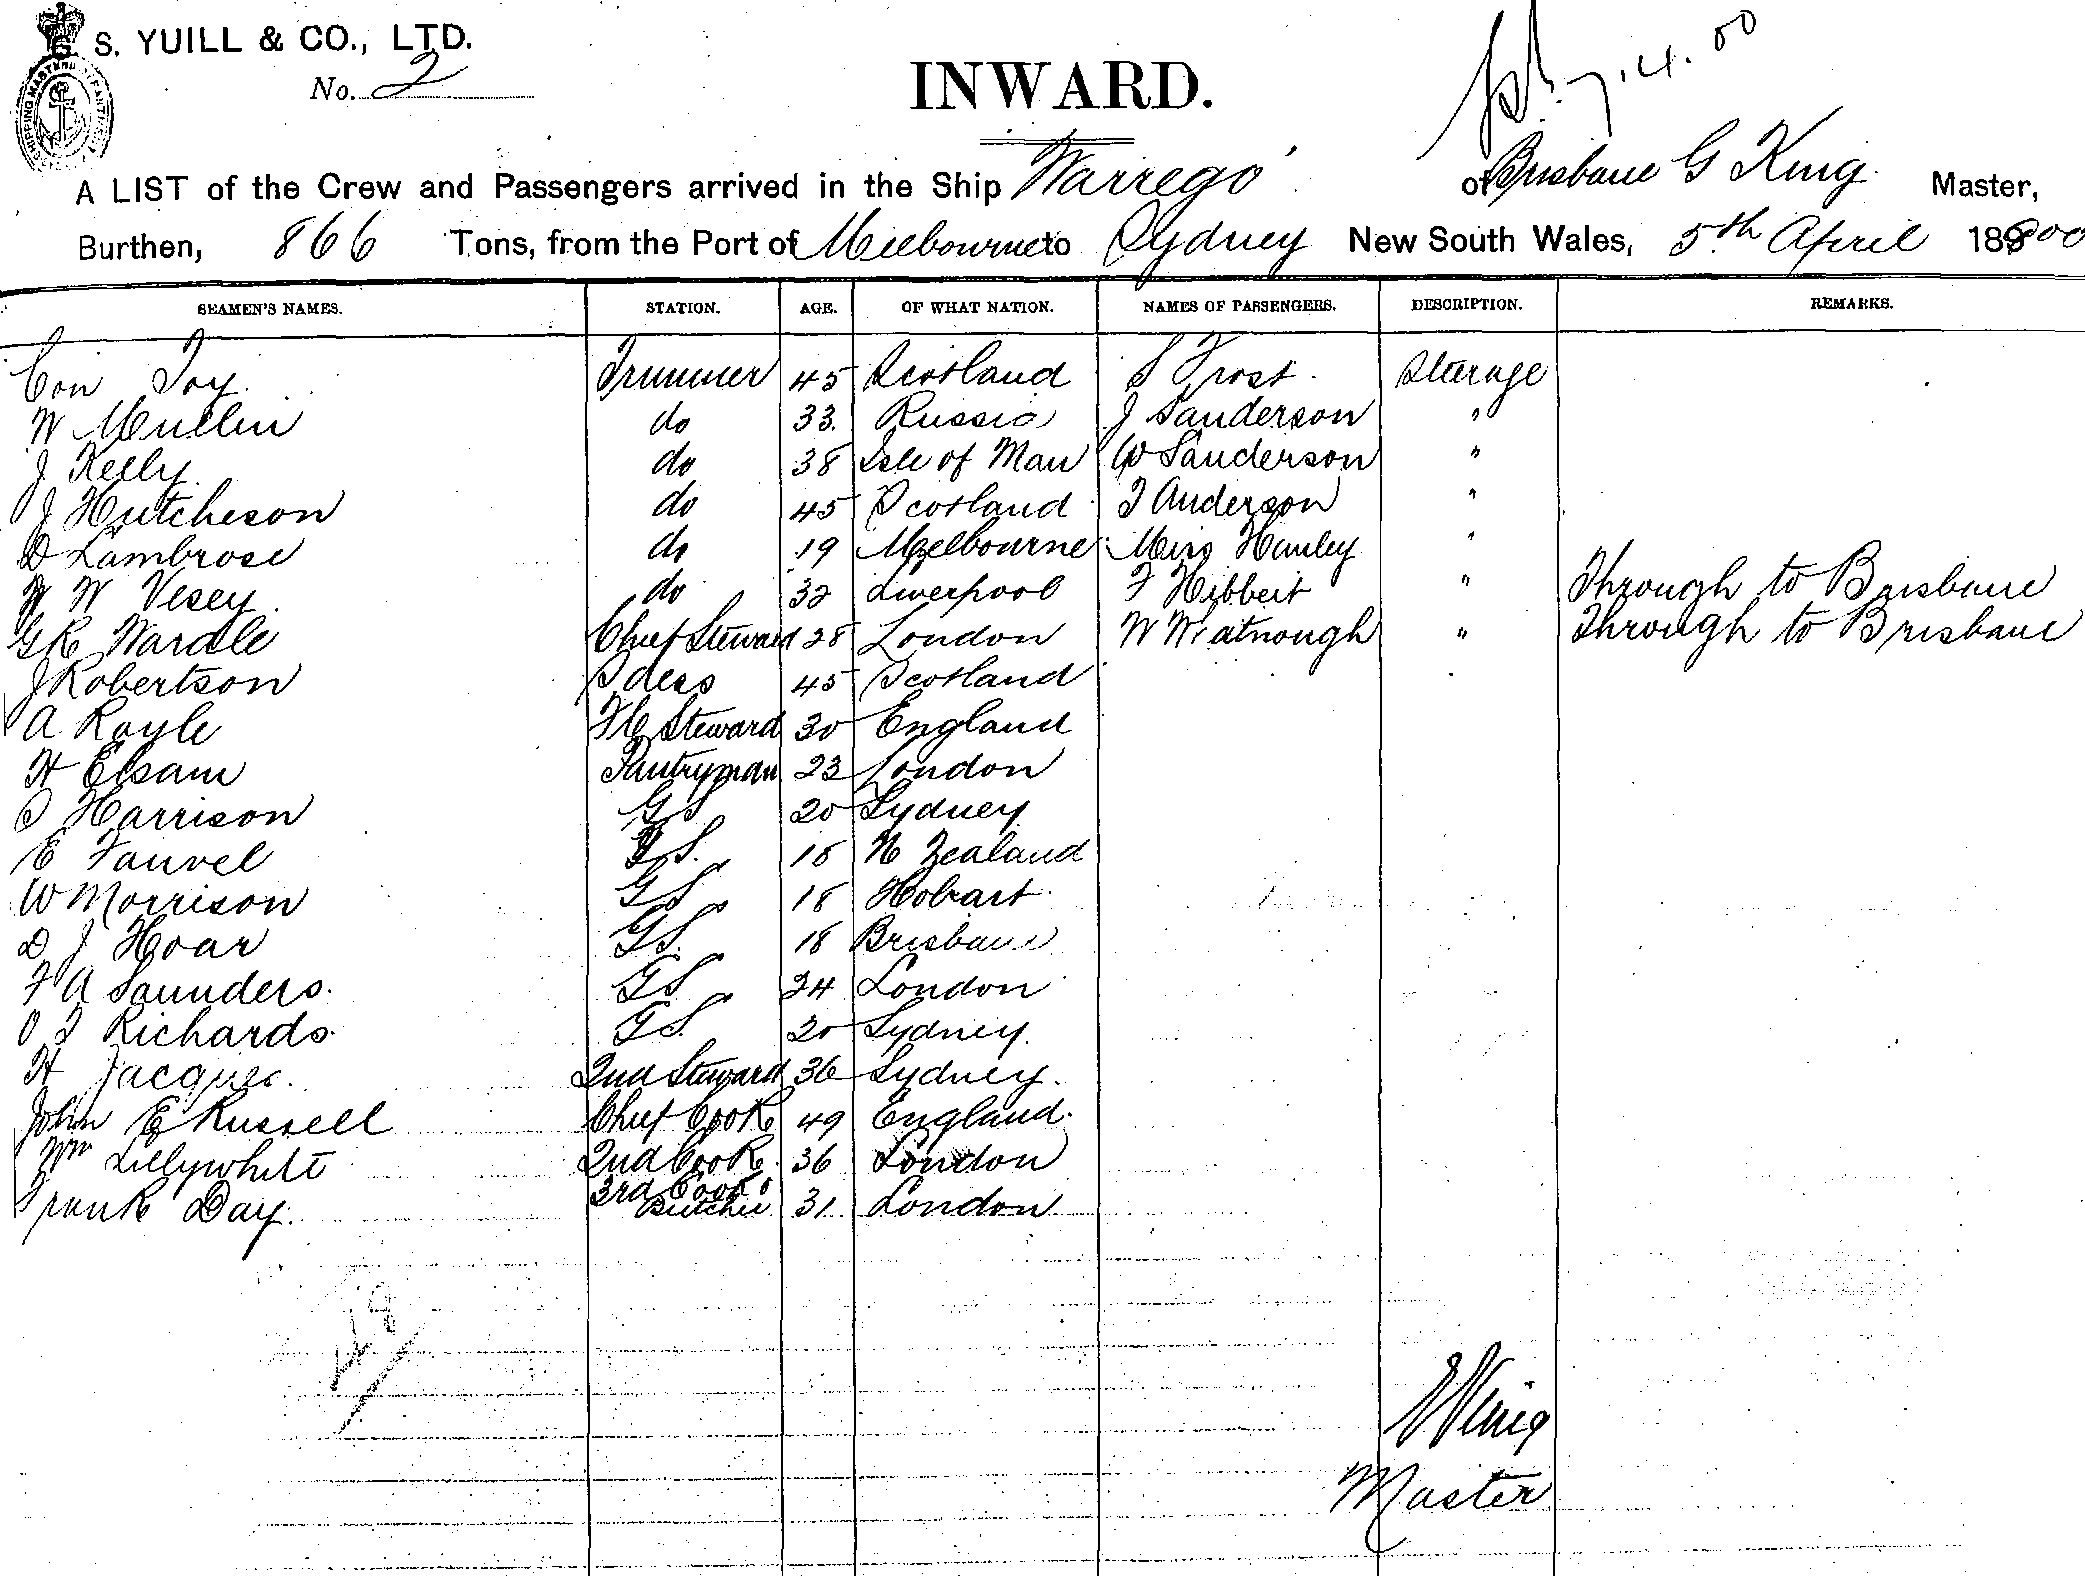 G. S. YUILL & CO., LTD.
No. 2
INWARD.
7.4.00
A LIST of the Crew and Passengers arrived in the Ship Warrego of Brisbane G King Master,
Burthen, 866 Tons, from the Port of Melbourne to Sydney New South Wales, 5th April 1900
SEAMEN'S NAMES. STATION. AGE. OF WHAT NATION. NAMES OF PASSENGERS. DESCRIPTION. REMARKS.
Con Foy Trimmer 45 Scotland S Frost Steerage
W Mullin do 33 Russia J Sanderson "
J Kelly do 38 Isle of Man W Sanderson "
J Hutcheson do 45 Scotland T Anderson "
D Lambrose do 19 Melbourne Miss Hanley "
W Vesey do 32 Liverpool F Hibbert " Through to Brisbane
G R Wardle Chief Steward 28 London W Watnough " Through to Brisbane
J Robertson S dess 45 Scotland
A Royle F C Steward 30 England
H Elsam Pantryman 23 London
S Harrison G S 20 Sydney
E Fauvel G S. 18 N Zealand
W Morrison G S 18 Hobart
D J Hoar G S. 18 Brisbane
F A Saunders G S 24 London
O J Richards G S. 20 Sydney
H Jacques 2nd Steward 36 Sydney
John E Russell Chief Cook 49 England
Wm Lillywhite 2nd Cook 36 London
Frank Day 3rd Cook & Butcher 31 London
G King
Master